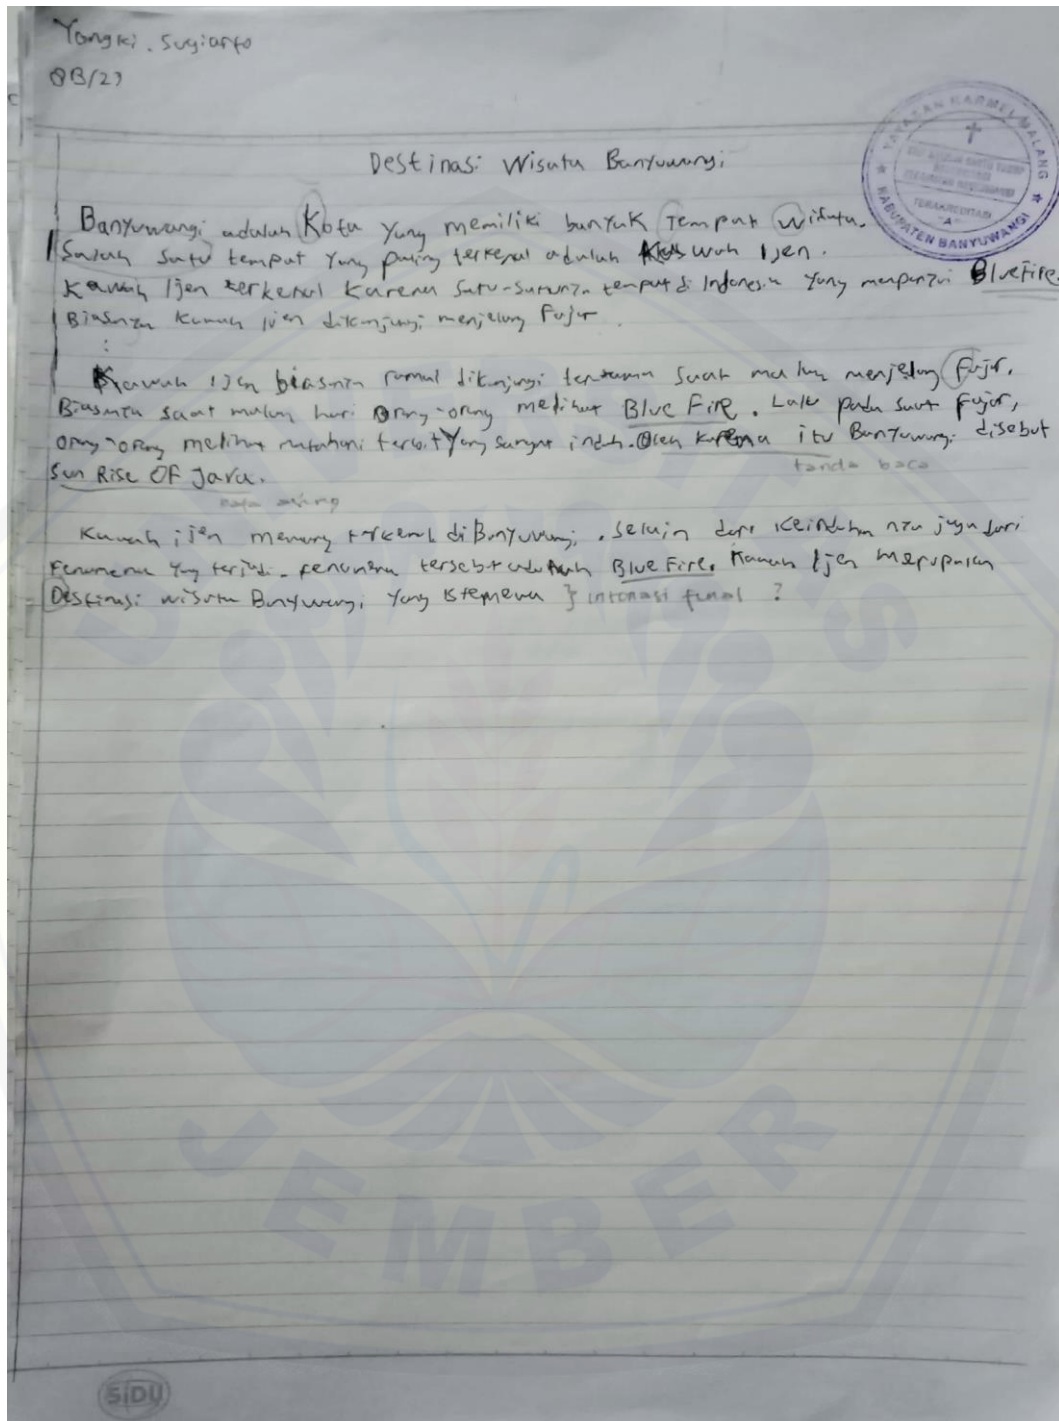 Yongki. Sugiarto
8B/23
Destinasi Wisata Banyuwangi
Banyuwangi adalah Kota Yang memiliki banyak Tempat Wisata.
Salah Satu tempat Yang paling terkenal adalah Kawah Ijen.
Kawah Ijen terkenal Karena Satu-Satunya tempat di Indonesia Yang mempunyai BlueFire.
Biasanya Kawah Ijen dikunjungi menjelang Fajar.
Kawah Ijen biasanya ramai dikunjungi terutama Saat malam menjelang Fajar.
Biasanya saat malam hari Orang-orang melihat Blue Fire. Lalu pada saat Fajar,
orang-orang melihat matahari terbit Yang sangat indah. Oleh Karena itu Banyuwangi disebut
Sun Rise OF Java.
tanda baca
kata asing
Kawah ijen memang terkenal di Banyuwangi. Selain dari Keindahannya juga dari
Fenomena Yang terjadi. Fenomena tersebut adalah Blue Fire. Kawah Ijen Merupakan
Destinasi wisata Banyuwangi Yang istemewa } intonasi final ?
YAYASAN KARMEL MALANG
TERAKREDITASI
"A"
KABUPATEN BANYUWANGI
JEMBER
SIDU